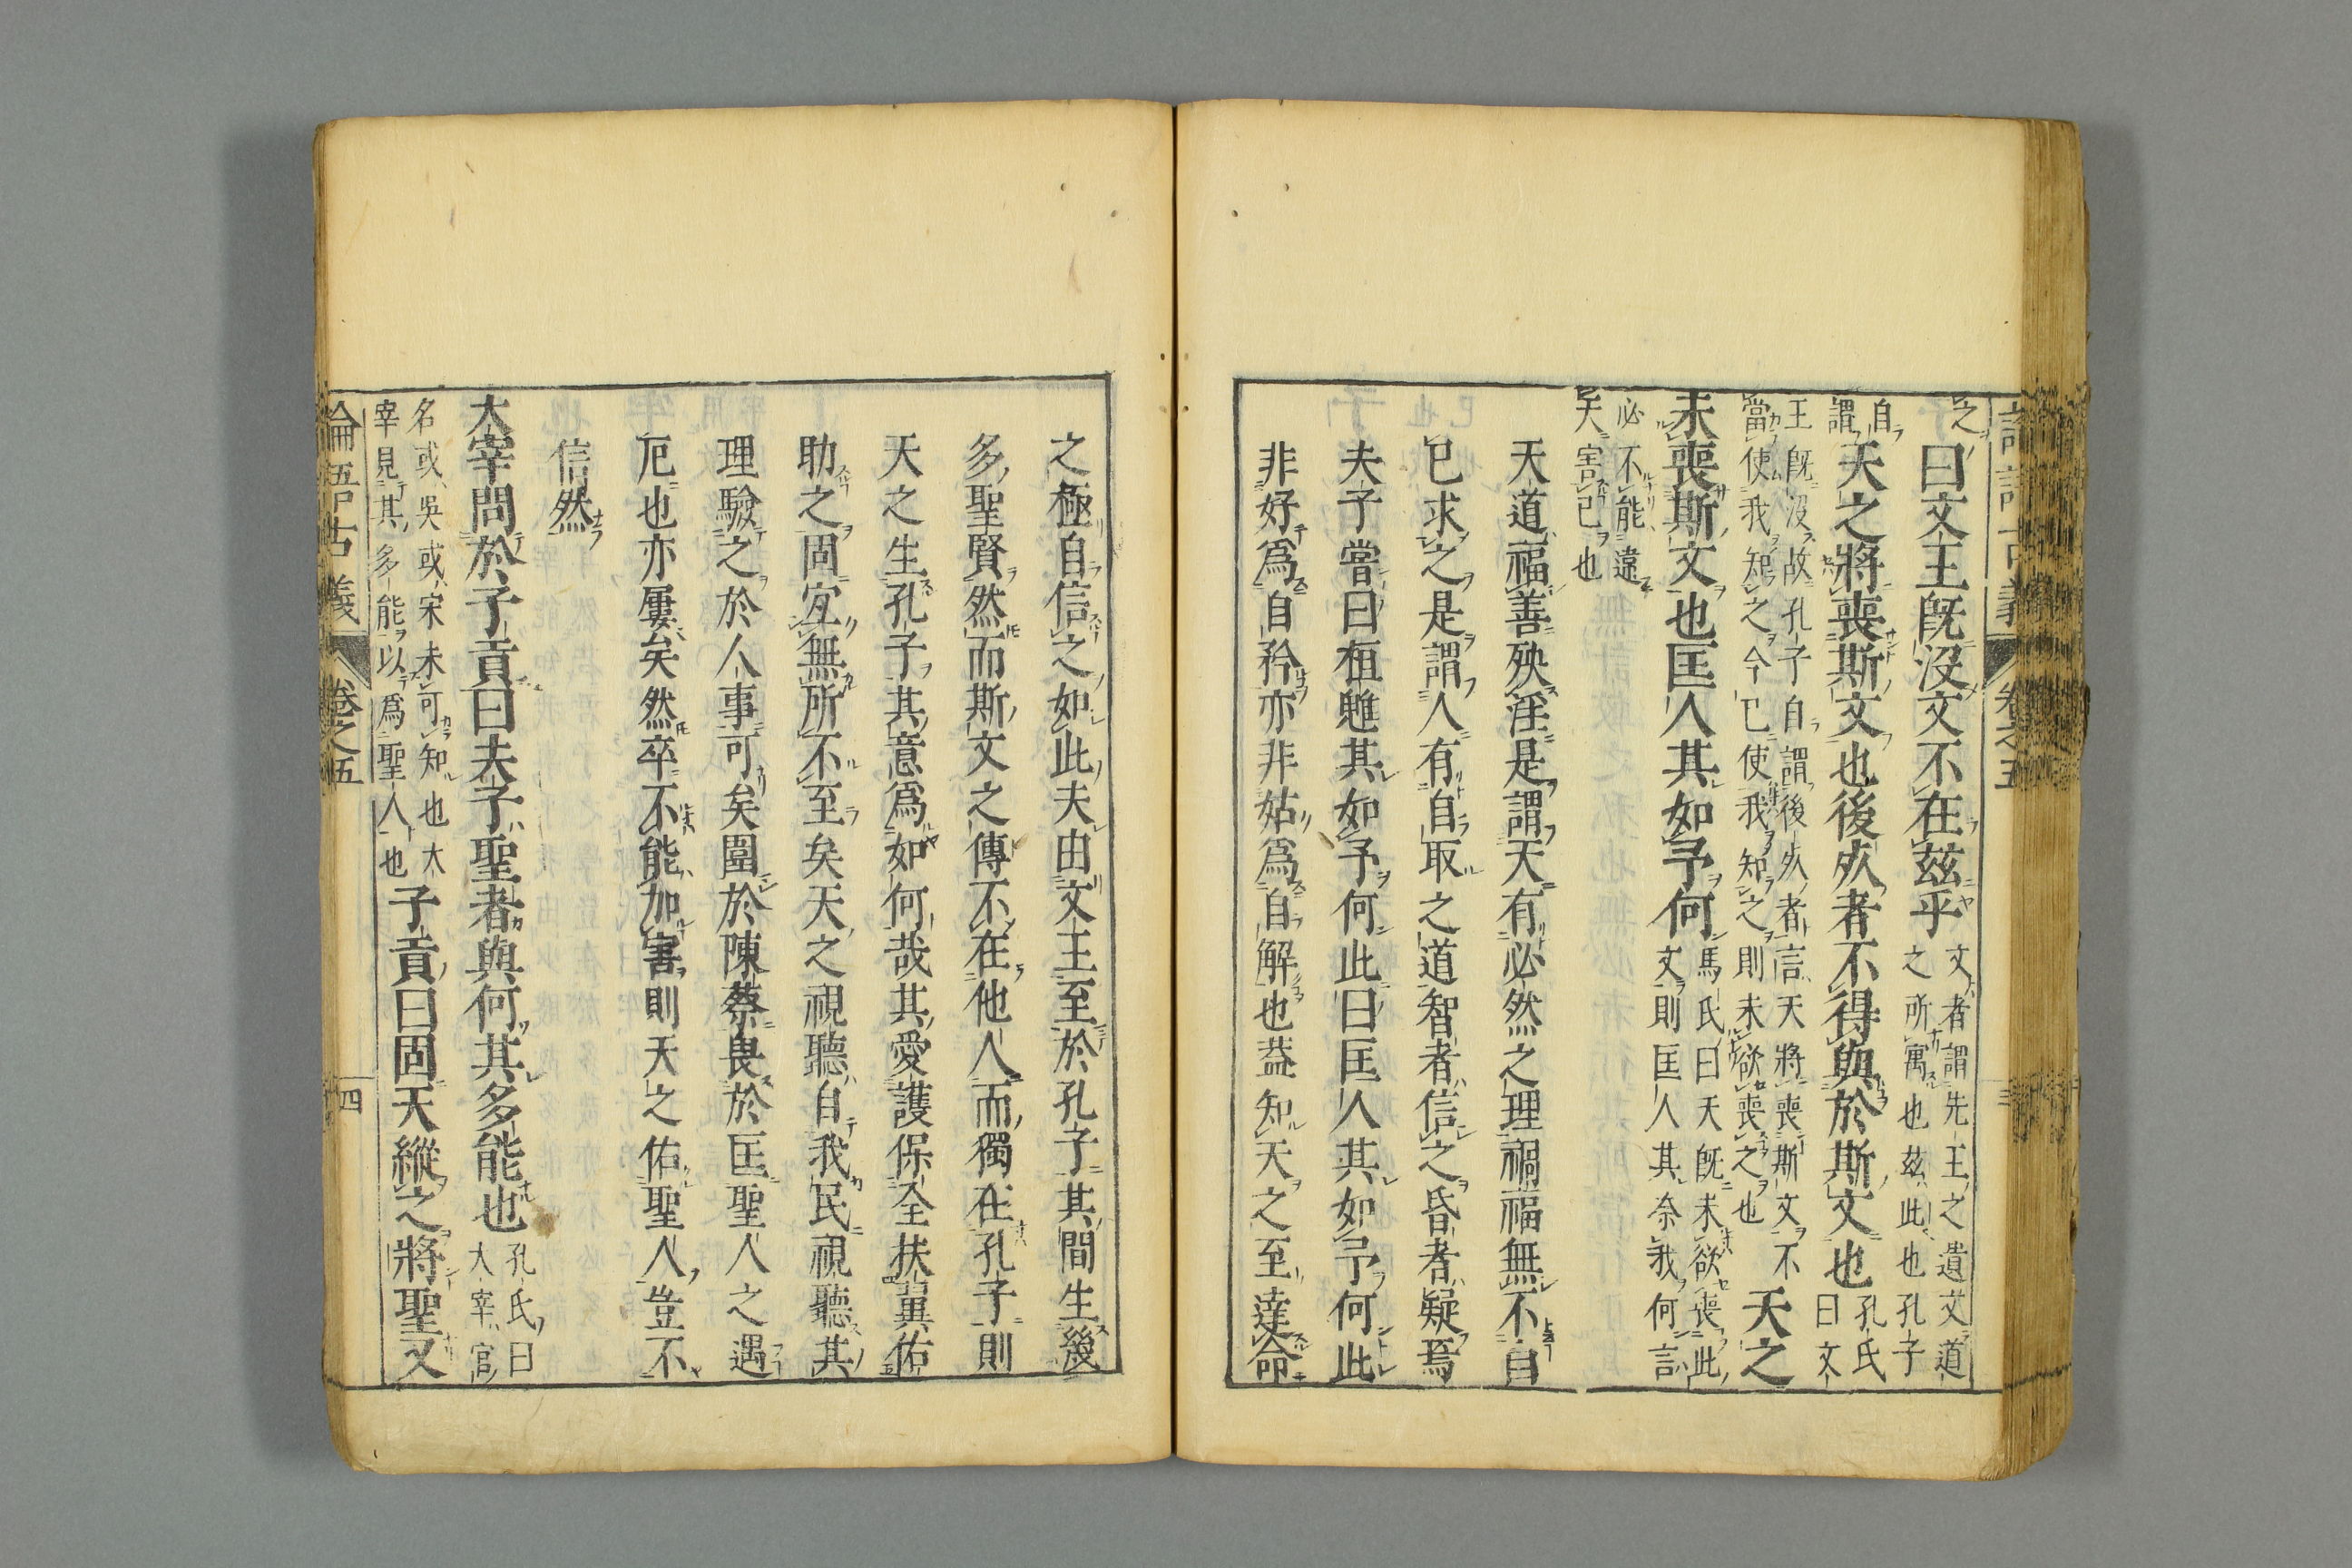 之曰文王既沒文不在玆乎文者謂先王之遺文道之所寓也玆此也孔子
自謂天之將喪斯文也後死者不得與於斯文也孔氏曰文
王既沒故孔子自謂後死者言天將喪斯文不當使我知之今已使我知之則未欲喪之也天之
未喪斯文也匡人其如予何馬氏曰天既未欲喪此文則匡人其奈我何言
必不能違天害己也
天道福善殃淫是謂天有必然之理禍福無不自
已求之是謂人有自取之道智者信之昏者疑焉
夫子嘗曰桓魋其如予何此曰匡人其如予何此
非好爲自矜亦非姑爲自解也蓋知天之至達命
之極自信之如此夫由文王至於孔子其間生幾
多聖賢然而斯文之傳不在他人而獨在孔子則
天之生孔子其意爲如何哉其愛護保全扶翼佑
助之固宜無所不至矣天之視聽自我民視聽其
理驗之於人事可矣圍於陳蔡畏於匡聖人之遇
厄也亦屢矣然卒不能加害則天之佑聖人豈不
信然
大宰問於子貢曰夫子聖者與何其多能也孔氏曰大宰官
名或吳或宋未可知也大宰見其多能以爲聖人也子貢曰固天縱之將聖又
論語古義 卷之五 四